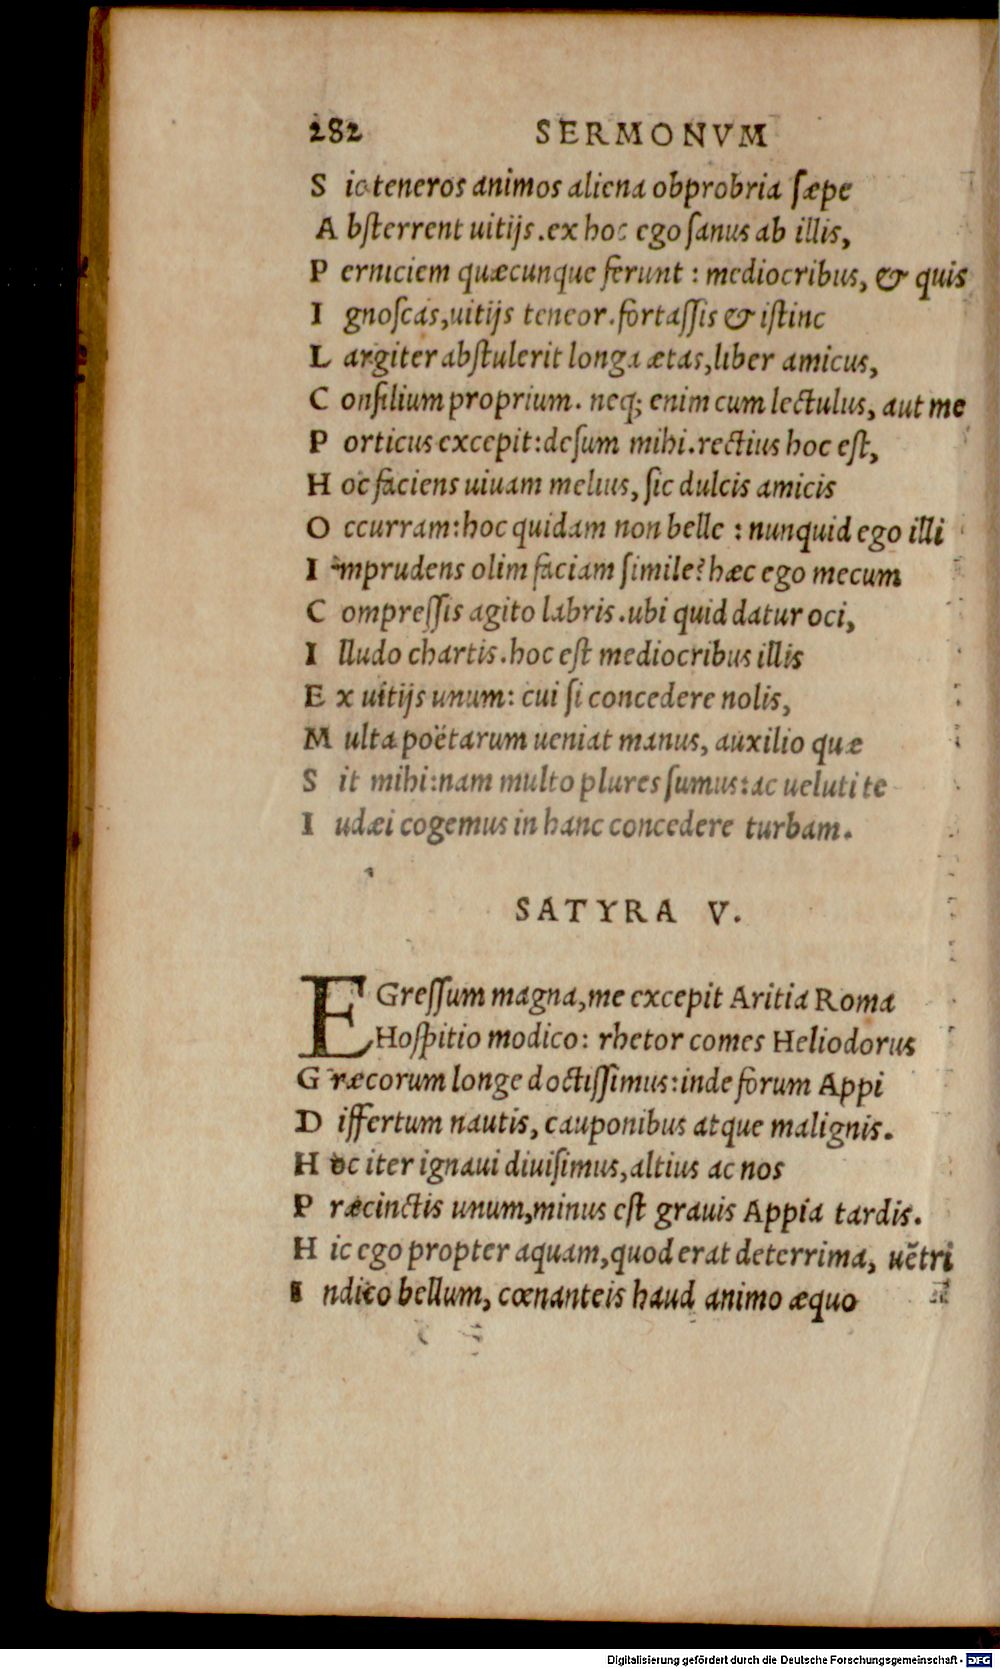 282 SERMONVM
S ic teneros animos aliena obprobria sæpe
A bsterrent uitijs. ex hoc ego sanus ab illis,
P erniciem quæcunque ferunt: mediocribus, & quis
I gnoscas, uitijs teneor. fortassis & istinc
L argiter abstulerit longa ætas, liber amicus,
C onsilium proprium. neq; enim cum lectulus, aut me
P orticus excepit: desum mihi. rectius hoc est,
H oc faciens uiuam melius, sic dulcis amicis
O ccurram: hoc quidam non belle: nunquid ego illi
I mprudens olim faciam simile? hæc ego mecum
C ompressis agito labris. ubi quid datur oci,
I lludo chartis. hoc est mediocribus illis
E x uitijs unum: cui si concedere nolis,
M ulta poëtarum ueniat manus, auxilio quæ
S it mihi: nam multo plures sumus: ac ueluti te
I udæi cogemus in hanc concedere turbam.
SATYRA V.
EGressum magna, me excepit Aritia Roma
Hospitio modico: rhetor comes Heliodorus
G ræcorum longe doctissimus: inde forum Appi
D iffertum nautis, cauponibus atque malignis.
H oc iter ignaui diuisimus, altius ac nos
P ræcinctis unum, minus est grauis Appia tardis.
H ic ego propter aquam, quod erat deterrima, uẽtri
I ndico bellum, cœnanteis haud animo æquo
Digitalisierung gefördert durch die Deutsche Forschungsgemeinschaft - DFG